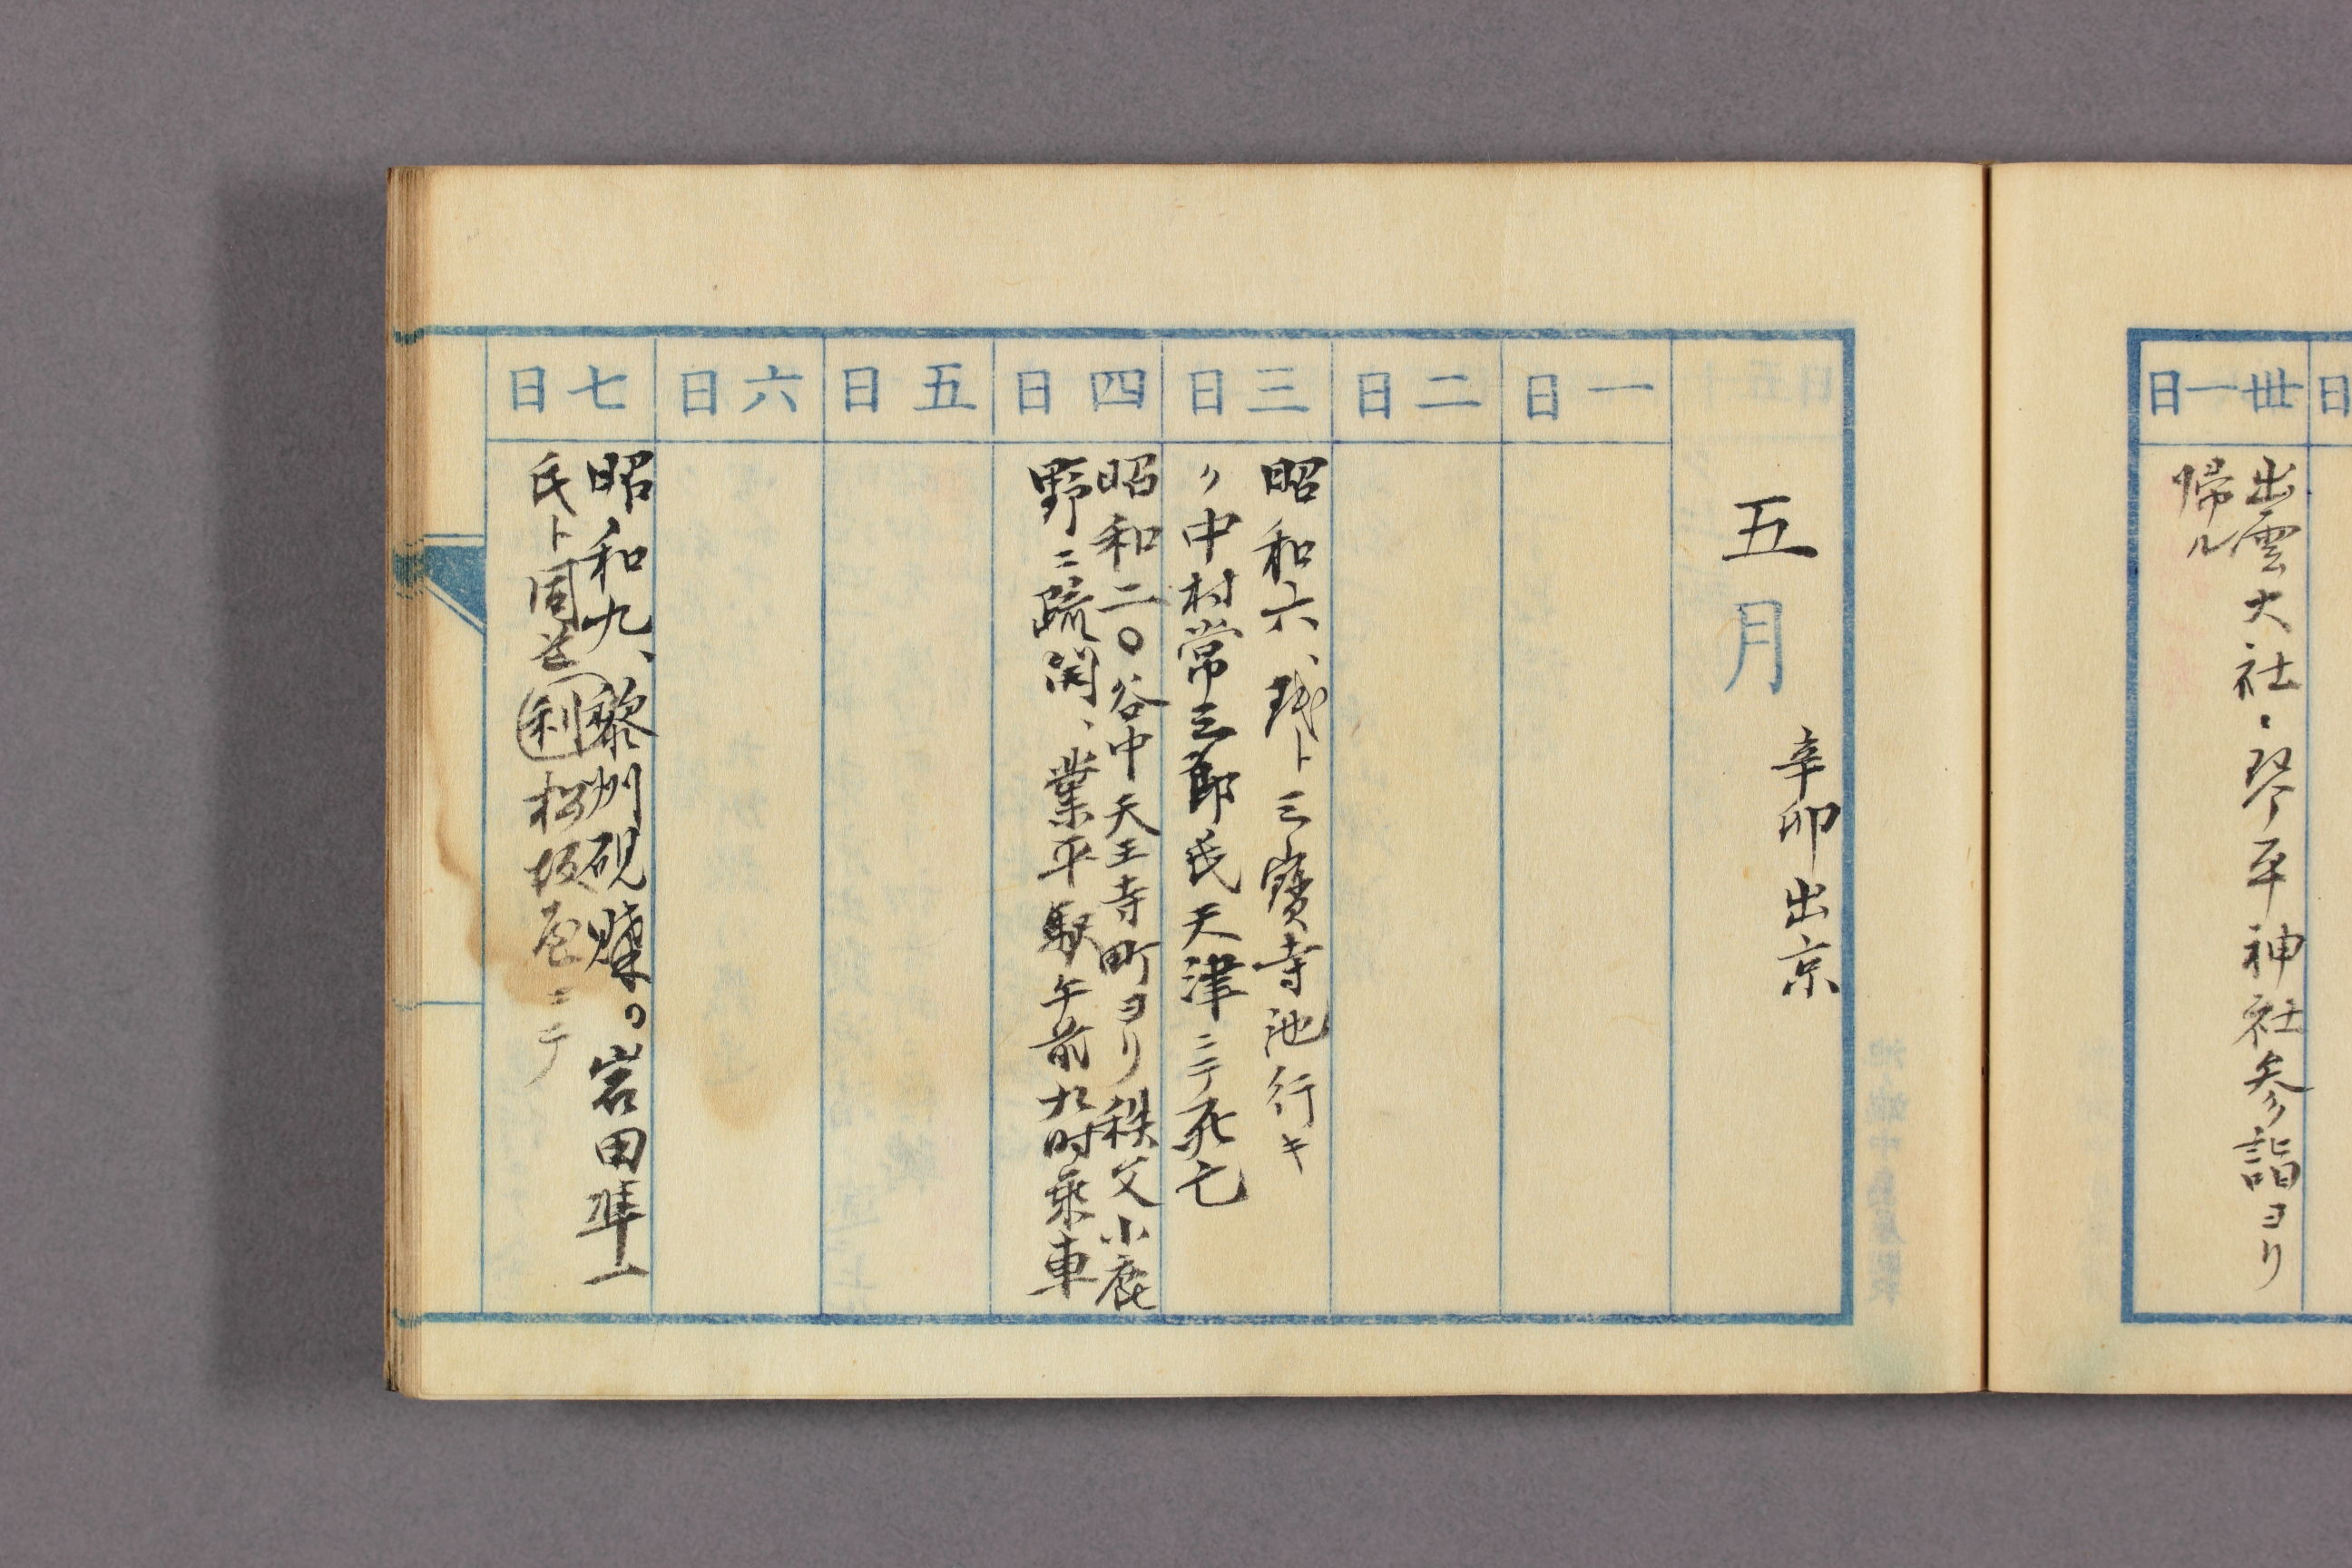 日
卅一日
出雲大社、琴平神社参詣ヨリ
帰ル
五月
辛卯出京
一日
二日
三日
昭和六、ト三寳寺池行キ
〃中村常三郎氏天津ニテ死亡
四日
昭和二〇谷中天王寺町ヨリ秩父小鹿
野ニ疏開、業平駅午前九時乗車
五日
六日
七日
昭和九、黎洲硯購フ。岩田準一
氏ト同道 利 松坂屋ニテ